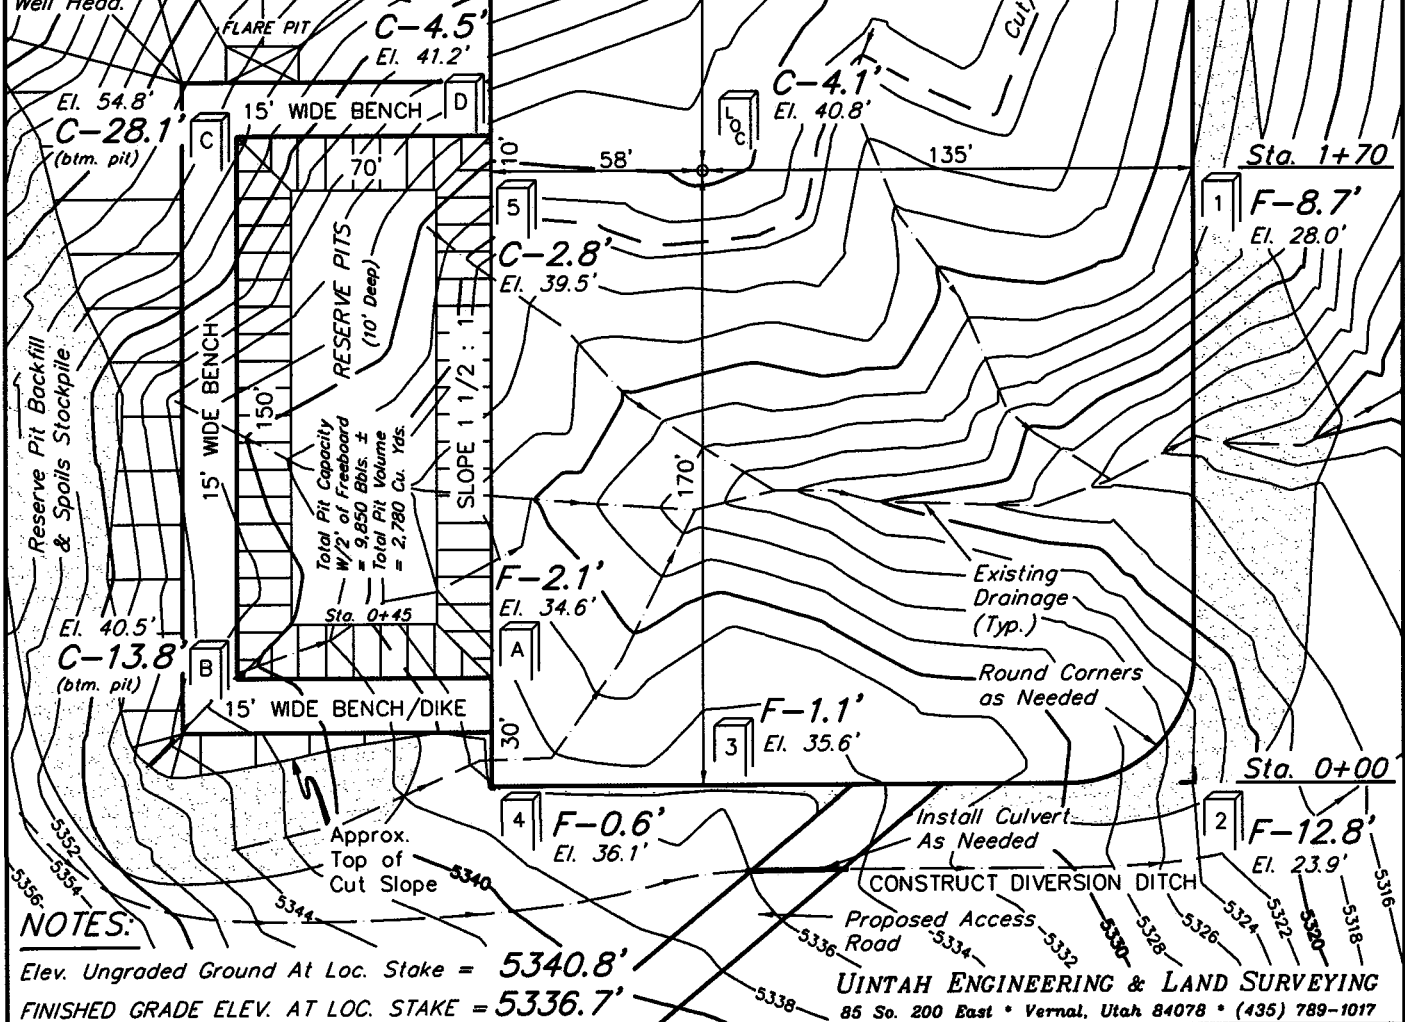 Well Head.
FLARE PIT
C-4.5'
El. 41.2'
Cut/
C-4.1'
El. 40.8'
El. 54.8'
C-28.1'
(btm. pit)
15' WIDE BENCH
C
D
LOC
70'
10'
58'
135'
Sta. 1+70
1
F-8.7'
El. 28.0'
5
C-2.8'
El. 39.5'
RESERVE PITS
(10' Deep)
SLOPE 1 1/2 : 1
15' WIDE BENCH
150'
Reserve Pit Backfill
& Spoils Stockpile
Total Pit Capacity
W/2' of Freeboard
= 9,850 Bbls. ±
Total Pit Volume
= 2,780 Cu. Yds.
170'
Existing
Drainage
(Typ.)
F-2.1'
El. 34.6'
Sta. 0+45
El. 40.5'
C-13.8'
(btm. pit)
B
A
15' WIDE BENCH/DIKE
30'
Round Corners
as Needed
3
F-1.1'
El. 35.6'
Sta. 0+00
4
F-0.6'
El. 36.1'
Install Culvert
As Needed
2
F-12.8'
El. 23.9'
Approx.
Top of
Cut Slope
CONSTRUCT DIVERSION DITCH
Proposed Access
Road
5352
5354
5356
5344
5340
5338
5336
5334
5332
5330
5328
5326
5324
5322
5320
5318
5316
NOTES:
Elev. Ungraded Ground At Loc. Stake = 5340.8'
FINISHED GRADE ELEV. AT LOC. STAKE = 5336.7'
UINTAH ENGINEERING & LAND SURVEYING
85 So. 200 East * Vernal, Utah 84078 * (435) 789-1017